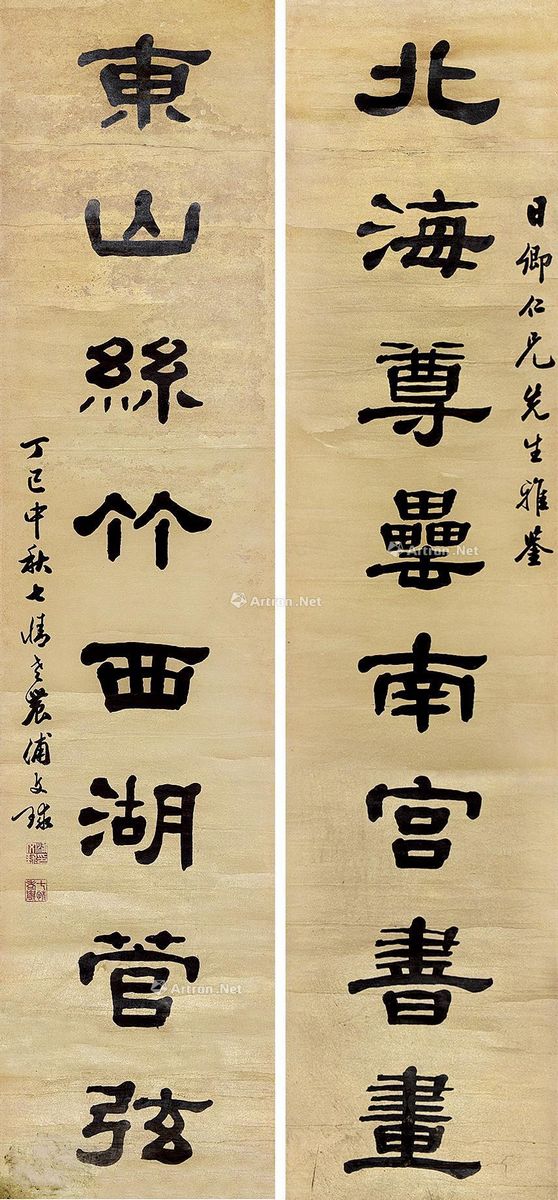 日卿仁兄先生雅鉴
北海尊罍南宫書畫
東山絲竹西湖菅弦
丁巳中秋七情老農浦文球
Artron.Net
Artron.Net
Artron.Net
Artron.Net